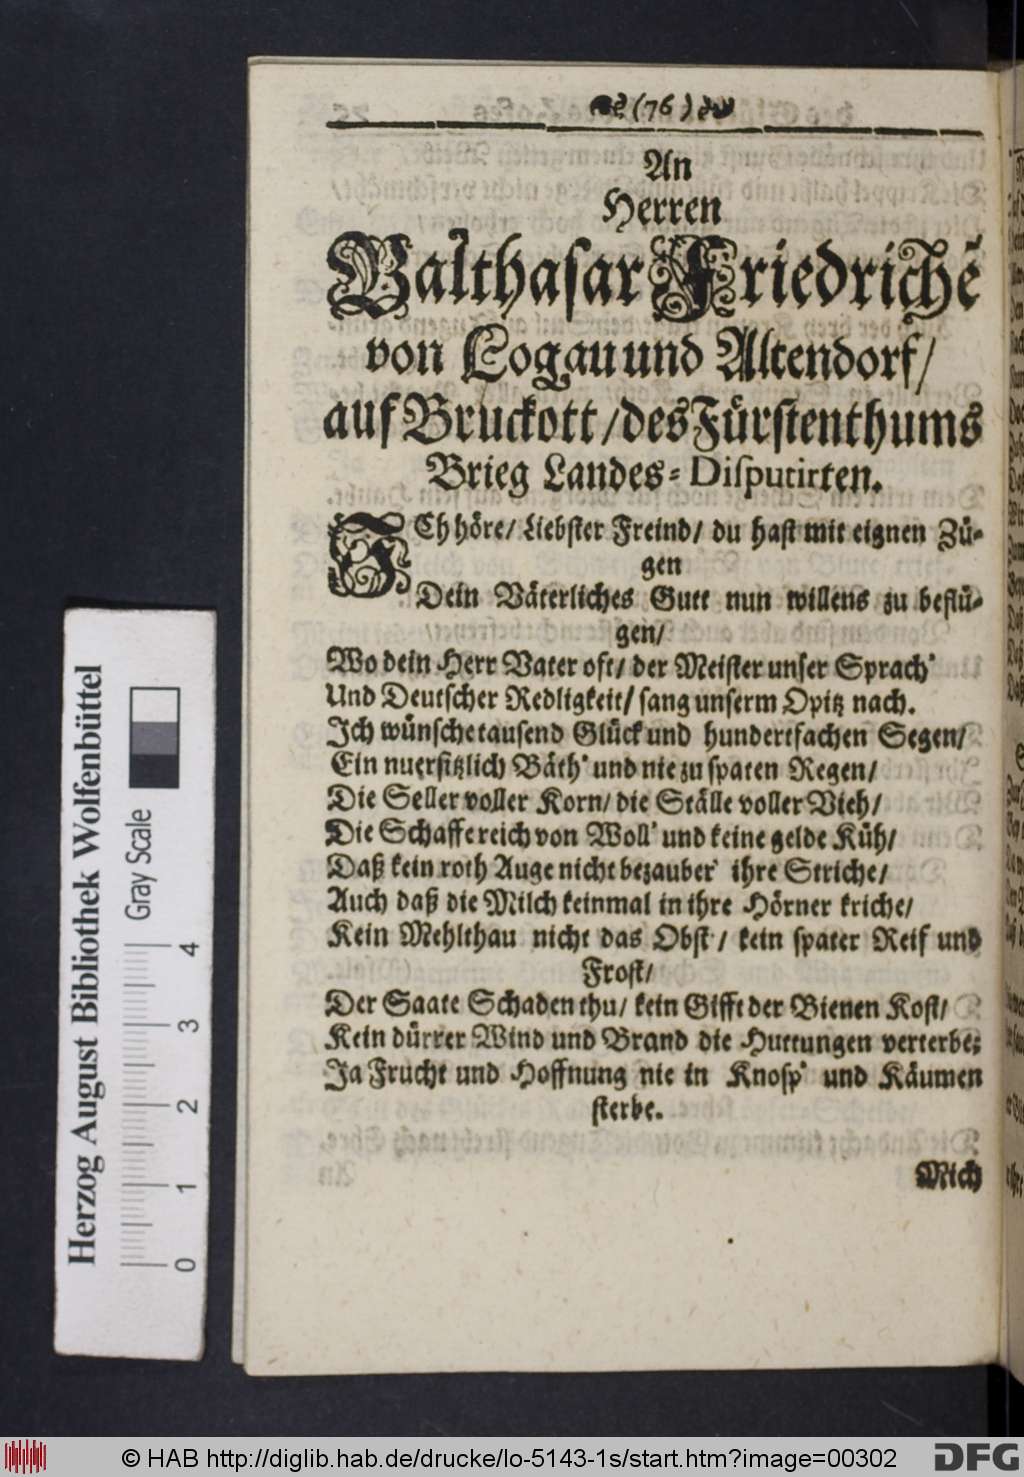 (76)
An
Herren
Balthasar Friedrichē
von Logau und Altendorf/
auf Bruckott/des Fürstenthums
Brieg Landes-Disputirten.
ICh höre/ Liebster Freind/ du hast mit eignen Zü-
gen
Dein Väterliches Gutt nun willens zu beflü-
gen/
Wo dein Herr Vater oft/ der Meister unser Sprach'
Und Deutscher Redligkeit/ sang unserm Opitz nach.
Ich wünsche tausend Glück und hundertfachen Segen/
Ein nuersitzlich Bäth' und nie zu spaten Regen/
Die Seller voller Korn/ die Ställe voller Vieh/
Die Schaffe reich von Woll' und keine gelde Küh/
Daß kein roth Auge nicht bezauber' ihre Striche/
Auch daß die Milch keinmal in ihre Hörner kriche/
Kein Mehlthau nicht das Obst'/ kein spater Reif und
Frost/
Der Saate Schaden thu/ kein Gifft der Bienen Kost/
Kein dürrer Wind und Brand die Huttungen verterbe;
Ja Frucht und Hoffnung nie in Knosp' und Käumen
sterbe.
Mich
Herzog August Bibliothek Wolfenbüttel
Gray Scale
0 1 2 3 4
© HAB http://diglib.hab.de/drucke/lo-5143-1s/start.htm?image=00302
DFG